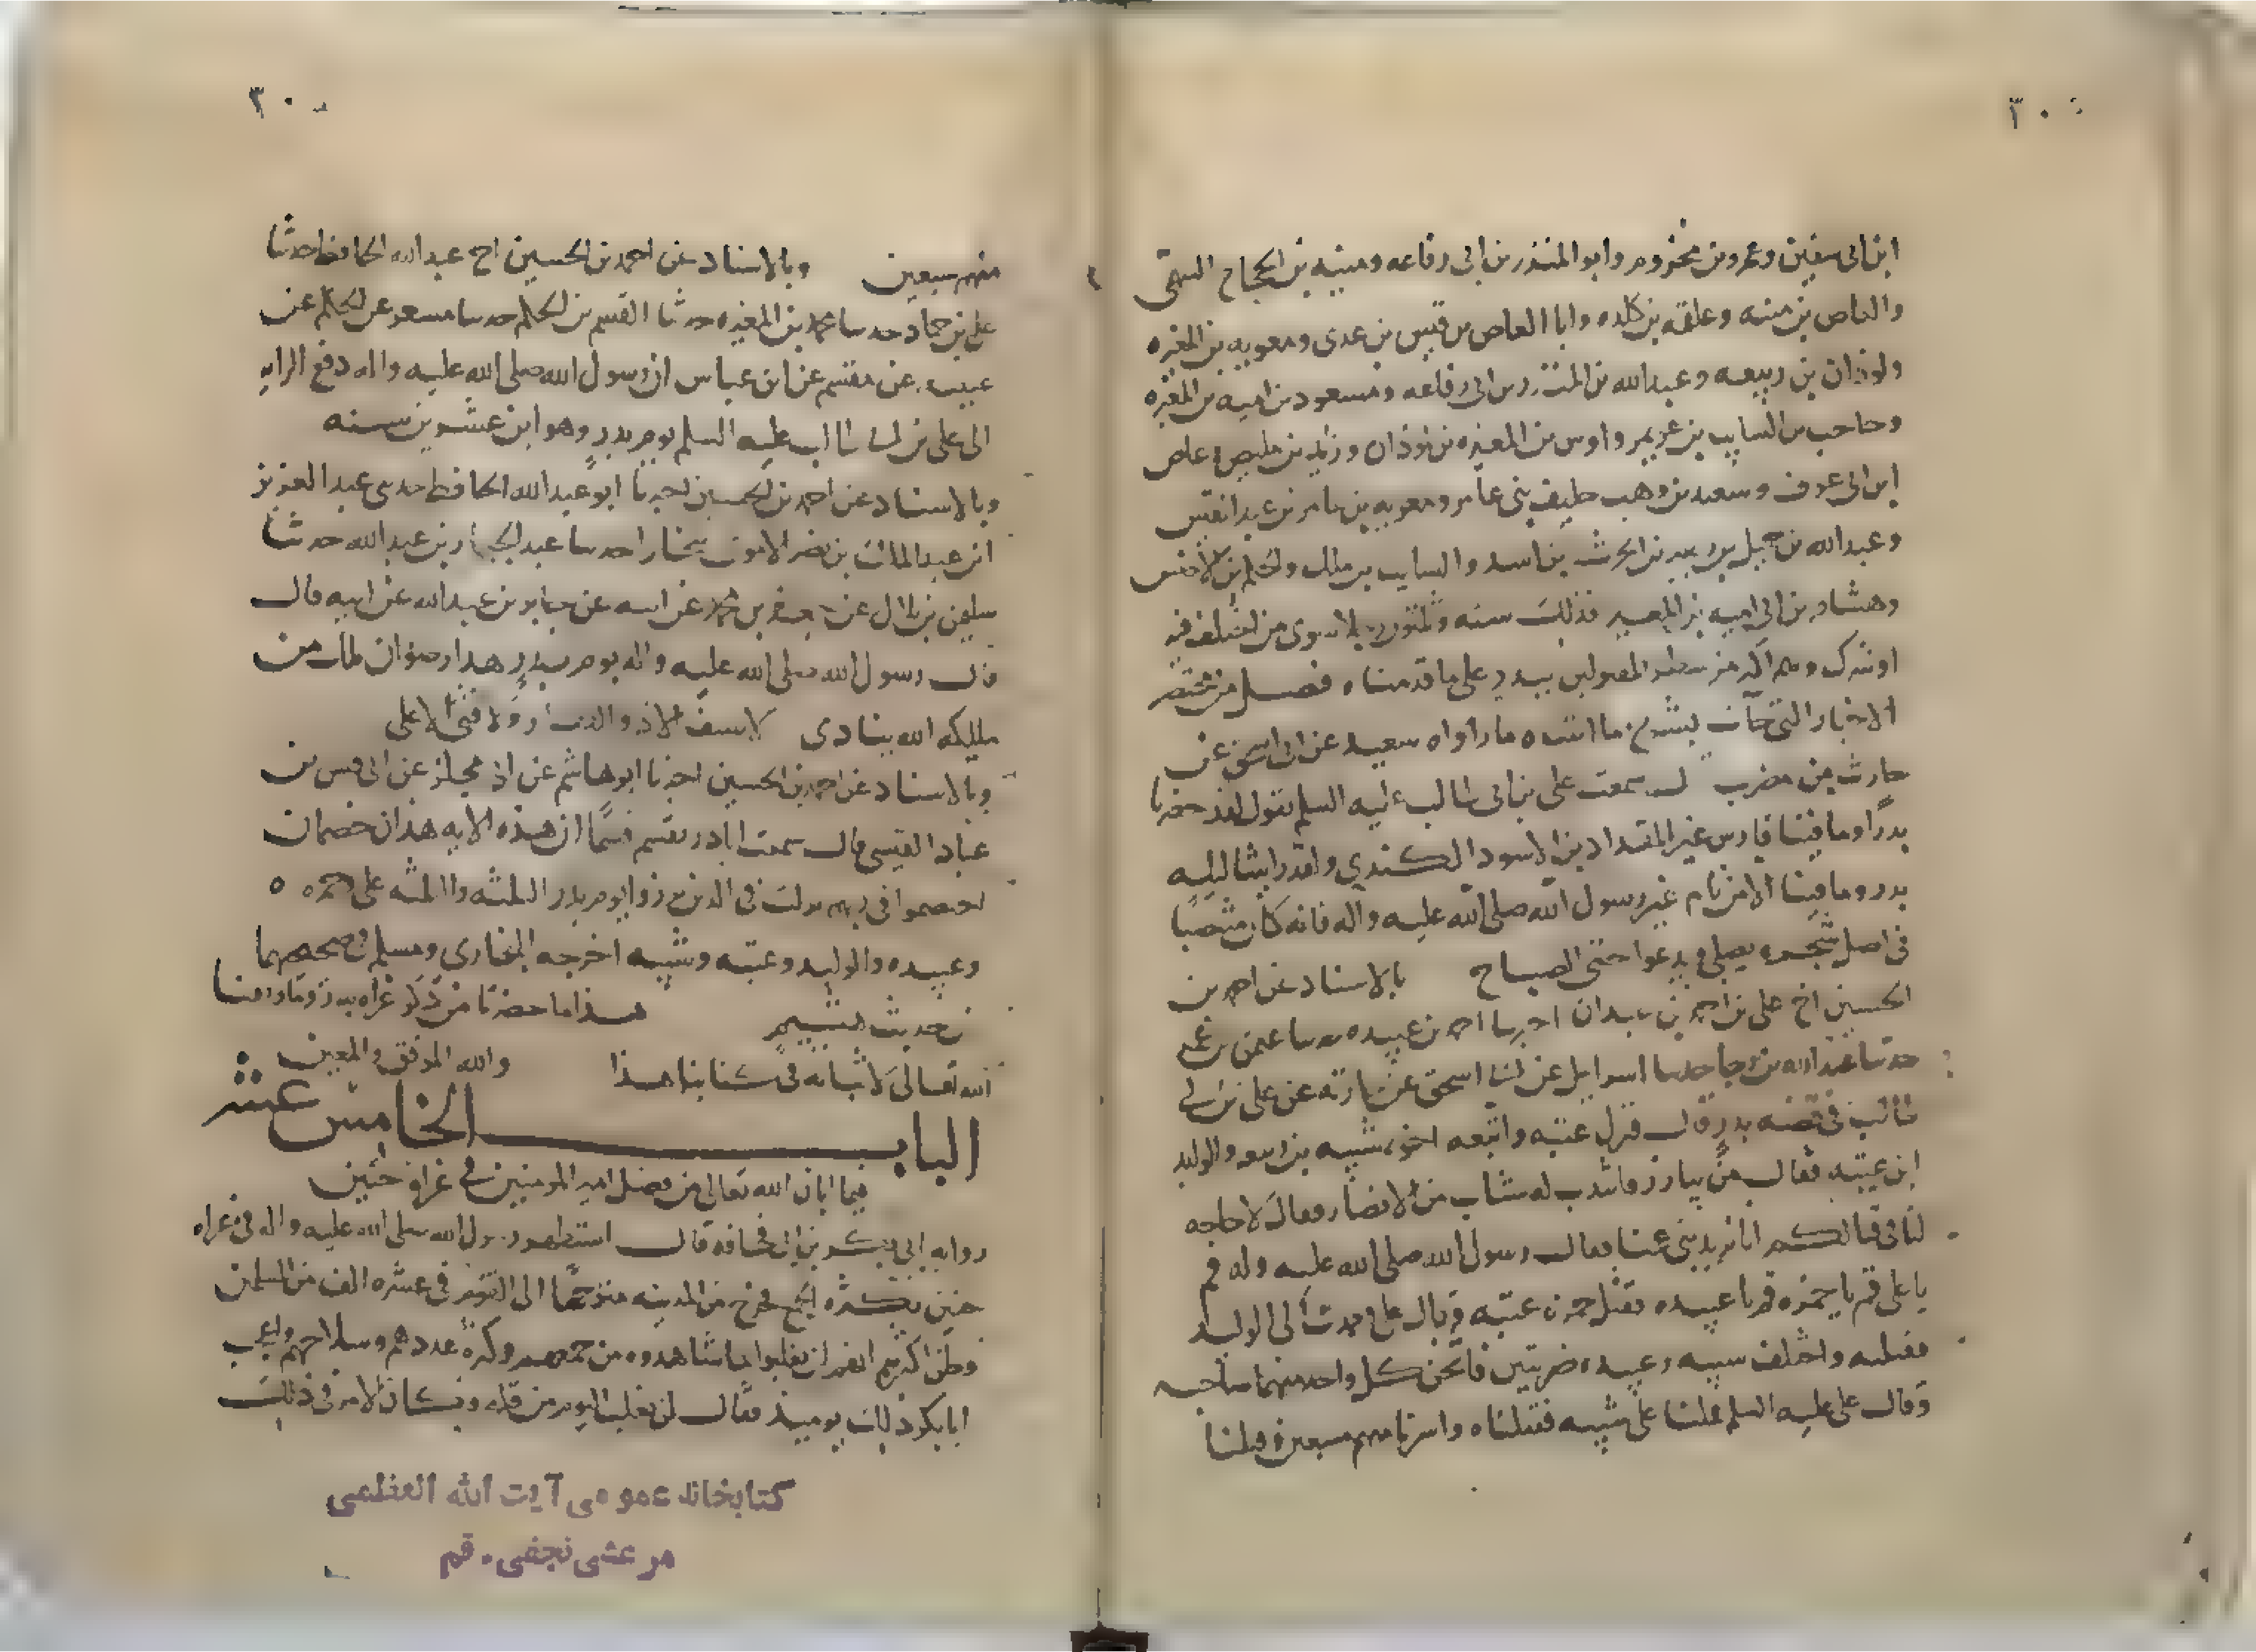 ابن ابى سفين وعمرو بن مخزوم وابو المنذر بن ابى رفاعه ومنبه بن الحجاج السهمى
والعاص بن منبه وعلقمه بن كلده وابا العاص بن قيس بن عدى ومعويه بن المغيره
ولوذان بن ربيعه وعبدالله بن المنذر بن ابى رفاعه ومسعود بن اميه بن المغيره
وحاجب بن السايب بن عويمر واوس بن المغيره بن لوذان وزيد بن مليص وعاص
ابن ابى عوف وسعيد بن وهب حليف بنى عامر ومعويه بن عامر بن عبد القيس
وعبدالله بن جميل بن زهير بن الحرث بن اسد والسايب بن ملك والحكم بن الاخنس
وهشام بن ابى اميه بن المغيره فذلك سته وثلثون رجلا سوى من اختلف فيه
او شرك وهم اكثر من شطر المقتولين ببدر على ما قدمناه فصل من مختصر
الاخبار التى جآت بشرح ما اثبتناه ما رواه سعيد عن ابى اسحق عن
حارث بن مضرب قال سمعت على بن ابى طالب عليه السلم يقول لقد حضرنا
بدرًا وما فينا فارس غير المقداد بن الاسود الكندي ولقد رايتنا ليله
بدر وما فينا الا من نام غير رسول الله صلى الله عليه واله فانه كان منتصبا
فى اصل شجره يصلى ويدعوا حتى الصباح بالاسناد عن احمد بن
الحسين اخ على بن احمد بن عبدان اخبرنا احمد بن عبيده حدثنا عثمن بن عمر
حدثنا عبد الله بن رجا حدثنا اسرايل عن ابى اسحق عن حارثه عن على بن ابى
طالب فى قصه بدر قال فبرز عتبه واتبعه اخوه شيبه بن ربيعه والوليد
ابن عتبه فقال من يبارز فانتدب له شاب من الانصار فقال لا حاجه
لنا فى قتالكم انا نريد بنى عمنا فقال رسول الله صلى الله عليه وله قم
يا على قم يا حمزه قم يا عبيده فقتل حمزه عتبه وقال على وعمدت الى الوليد
فقتلته واختلف شيبه وعبيده ضربتين فاثخن كل واحد منهما صاحبه
وقال على عليه السلم فملنا على شيبه فقتلناه واسرنا منهم سبعين وقتلنا
منهم سبعين وبالاسناد عن احمد بن الحسين اخ عبدالله الحافظ حدثنا
على بن حماد حدثنا محمد بن المغيره حدثنا القسم بن الحكم حدثنا مسعر عن الحكم عن
عيينه عن مقسم عن ابن عباس ان رسول الله صلى الله عليه واله دفع الرايه
الى على بن ابى طالب عليه السلم يوم بدر وهو ابن عشرين سنه
وبالاسناد عن احمد بن الحسين اخبرنا ابو عبدالله الحافظ حدثنى عبد العزيز
ابن عبدالملك بن نصر الاموى ببخارا حدثنا عبد الجبار بن عبدالله حدثنا
سليمن بن بلال عن جعفر بن محمد عن ابيه عن جابر بن عبدالله عن ابيه قال
قال رسول الله صلى الله عليه واله يوم بدر هذا رضوان ملك من
مليكه الله ينادى لا سيف الا ذو الفقار ولا فتى الا على
وبالاسناد عن احمد بن الحسين اخبرنا ابو هاشم عن ابى مجلز عن ابى قيس بن
عباد القيسى قال سمعت اباذر يقسم قسمًا ان هذه الايه هذان خصمان
اختصموا فى ربهم نزلت فى الذين برزوا يوم بدر الثلثه والثلثه على حمزه
وعبيده والوليد وعتبه وشيبه اخرجه البخارى ومسلم فى صحيحهما
من حديث هشيم هذا ما حضرنا من ذكر غزاه بدر وما وفقنا
الله تعالى لاثباته فى كتابنا هذا والله الموفق والمعين
الباب الخامس عشر
فيما ابان الله تعالى من فضل امير المومنين فى غزاه حنين
روايه ابى بكر بن ابى قحافه قال استظهر رسول الله صلى الله عليه واله فى غزاه
حنين بكثره الجمع فخرج من المدينه متوجهًا الى القوم فى عشره الف من المسلمين
وظن اكثرهم انهم لن يغلبوا لما شاهدوه من جمعهم وكثره عددهم وسلاحهم واعجب
ابابكر ذلك يوميذ فقال لن نغلب اليوم من قله وكان الامر فى ذلك
كتابخانه عمومى آيت الله العظمى
مرعشى نجفى - قم